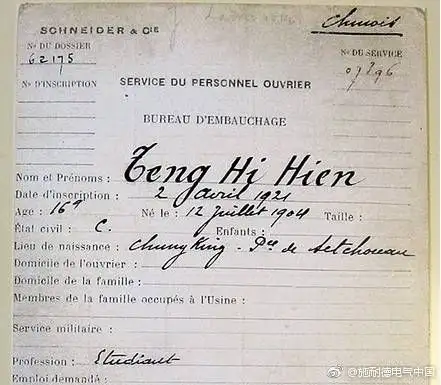 Chinois
SCHNEIDER & CIE
No DU DOSSIER
62175
No DU SERVICE
07396
No D'INSCRIPTION
SERVICE DU PERSONNEL OUVRIER
BUREAU D'EMBAUCHAGE
Nom et Prénoms : Teng Hi Hien
Date d'inscription : 2 avril 1921
Age : 16a Né le : 12 Juillet 1904 Taille :
État civil : C. Enfants :
Lieu de naissance : Chung King - Pce de Setchouan
Domicile de l'ouvrier :
Domicile de la famille :
Membres de la famille occupés à l'Usine :
Service militaire :
Profession : Etudiant
Emploi demandé :
@施耐德电气中国